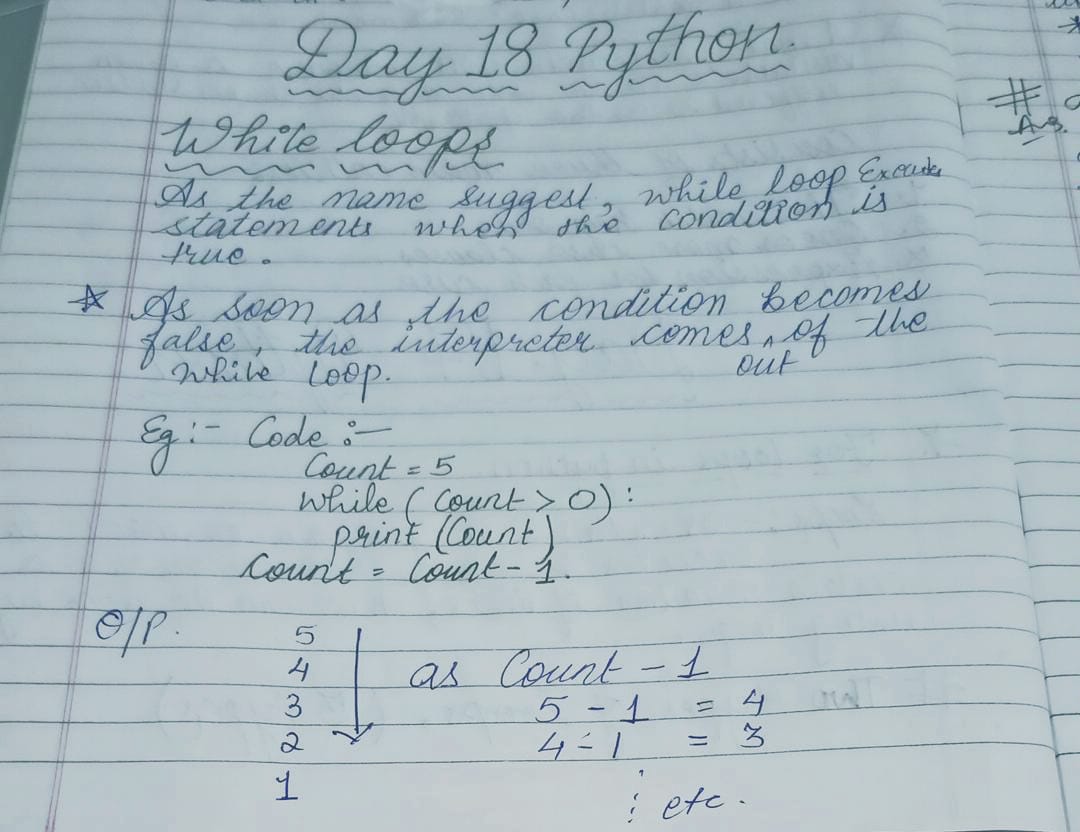 Day 18 Python.
While loops
As the name suggest, while loop Executes
statements when the condition is
true.
☆ As soon as the condition becomes
false, the interpreter comes ^ of the
out
while loop.
Eg :- Code :-
Count = 5
while (Count > 0) :
print (Count)
Count = Count - 1.
O/P.
5
4 as Count - 1
3 5 - 1 = 4
2 4 - 1 = 3
1
⋮ etc.
#